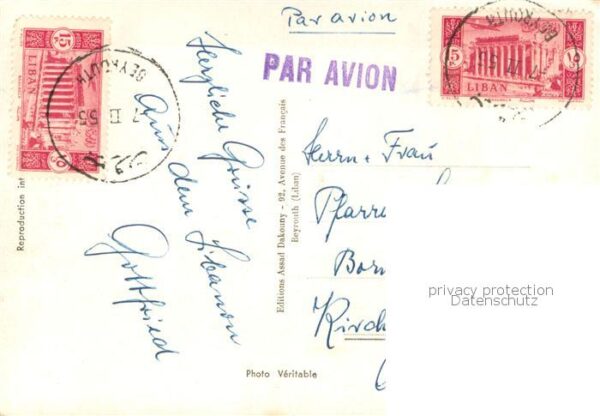 Par avion
PAR AVION
15
LIBAN
BEYROUTH
7 II 55
15
LIBAN
BEYROUTH
Herzliche Grüsse
Aus dem Libanon
Gottfried
Editions Assad Dakouny - 92, Avenue des Français
Beyrouth (Liban)
Reproduction int
Photo Véritable
Herrn + Frau
Pfarre
Born
Kirch
privacy protection
Datenschutz